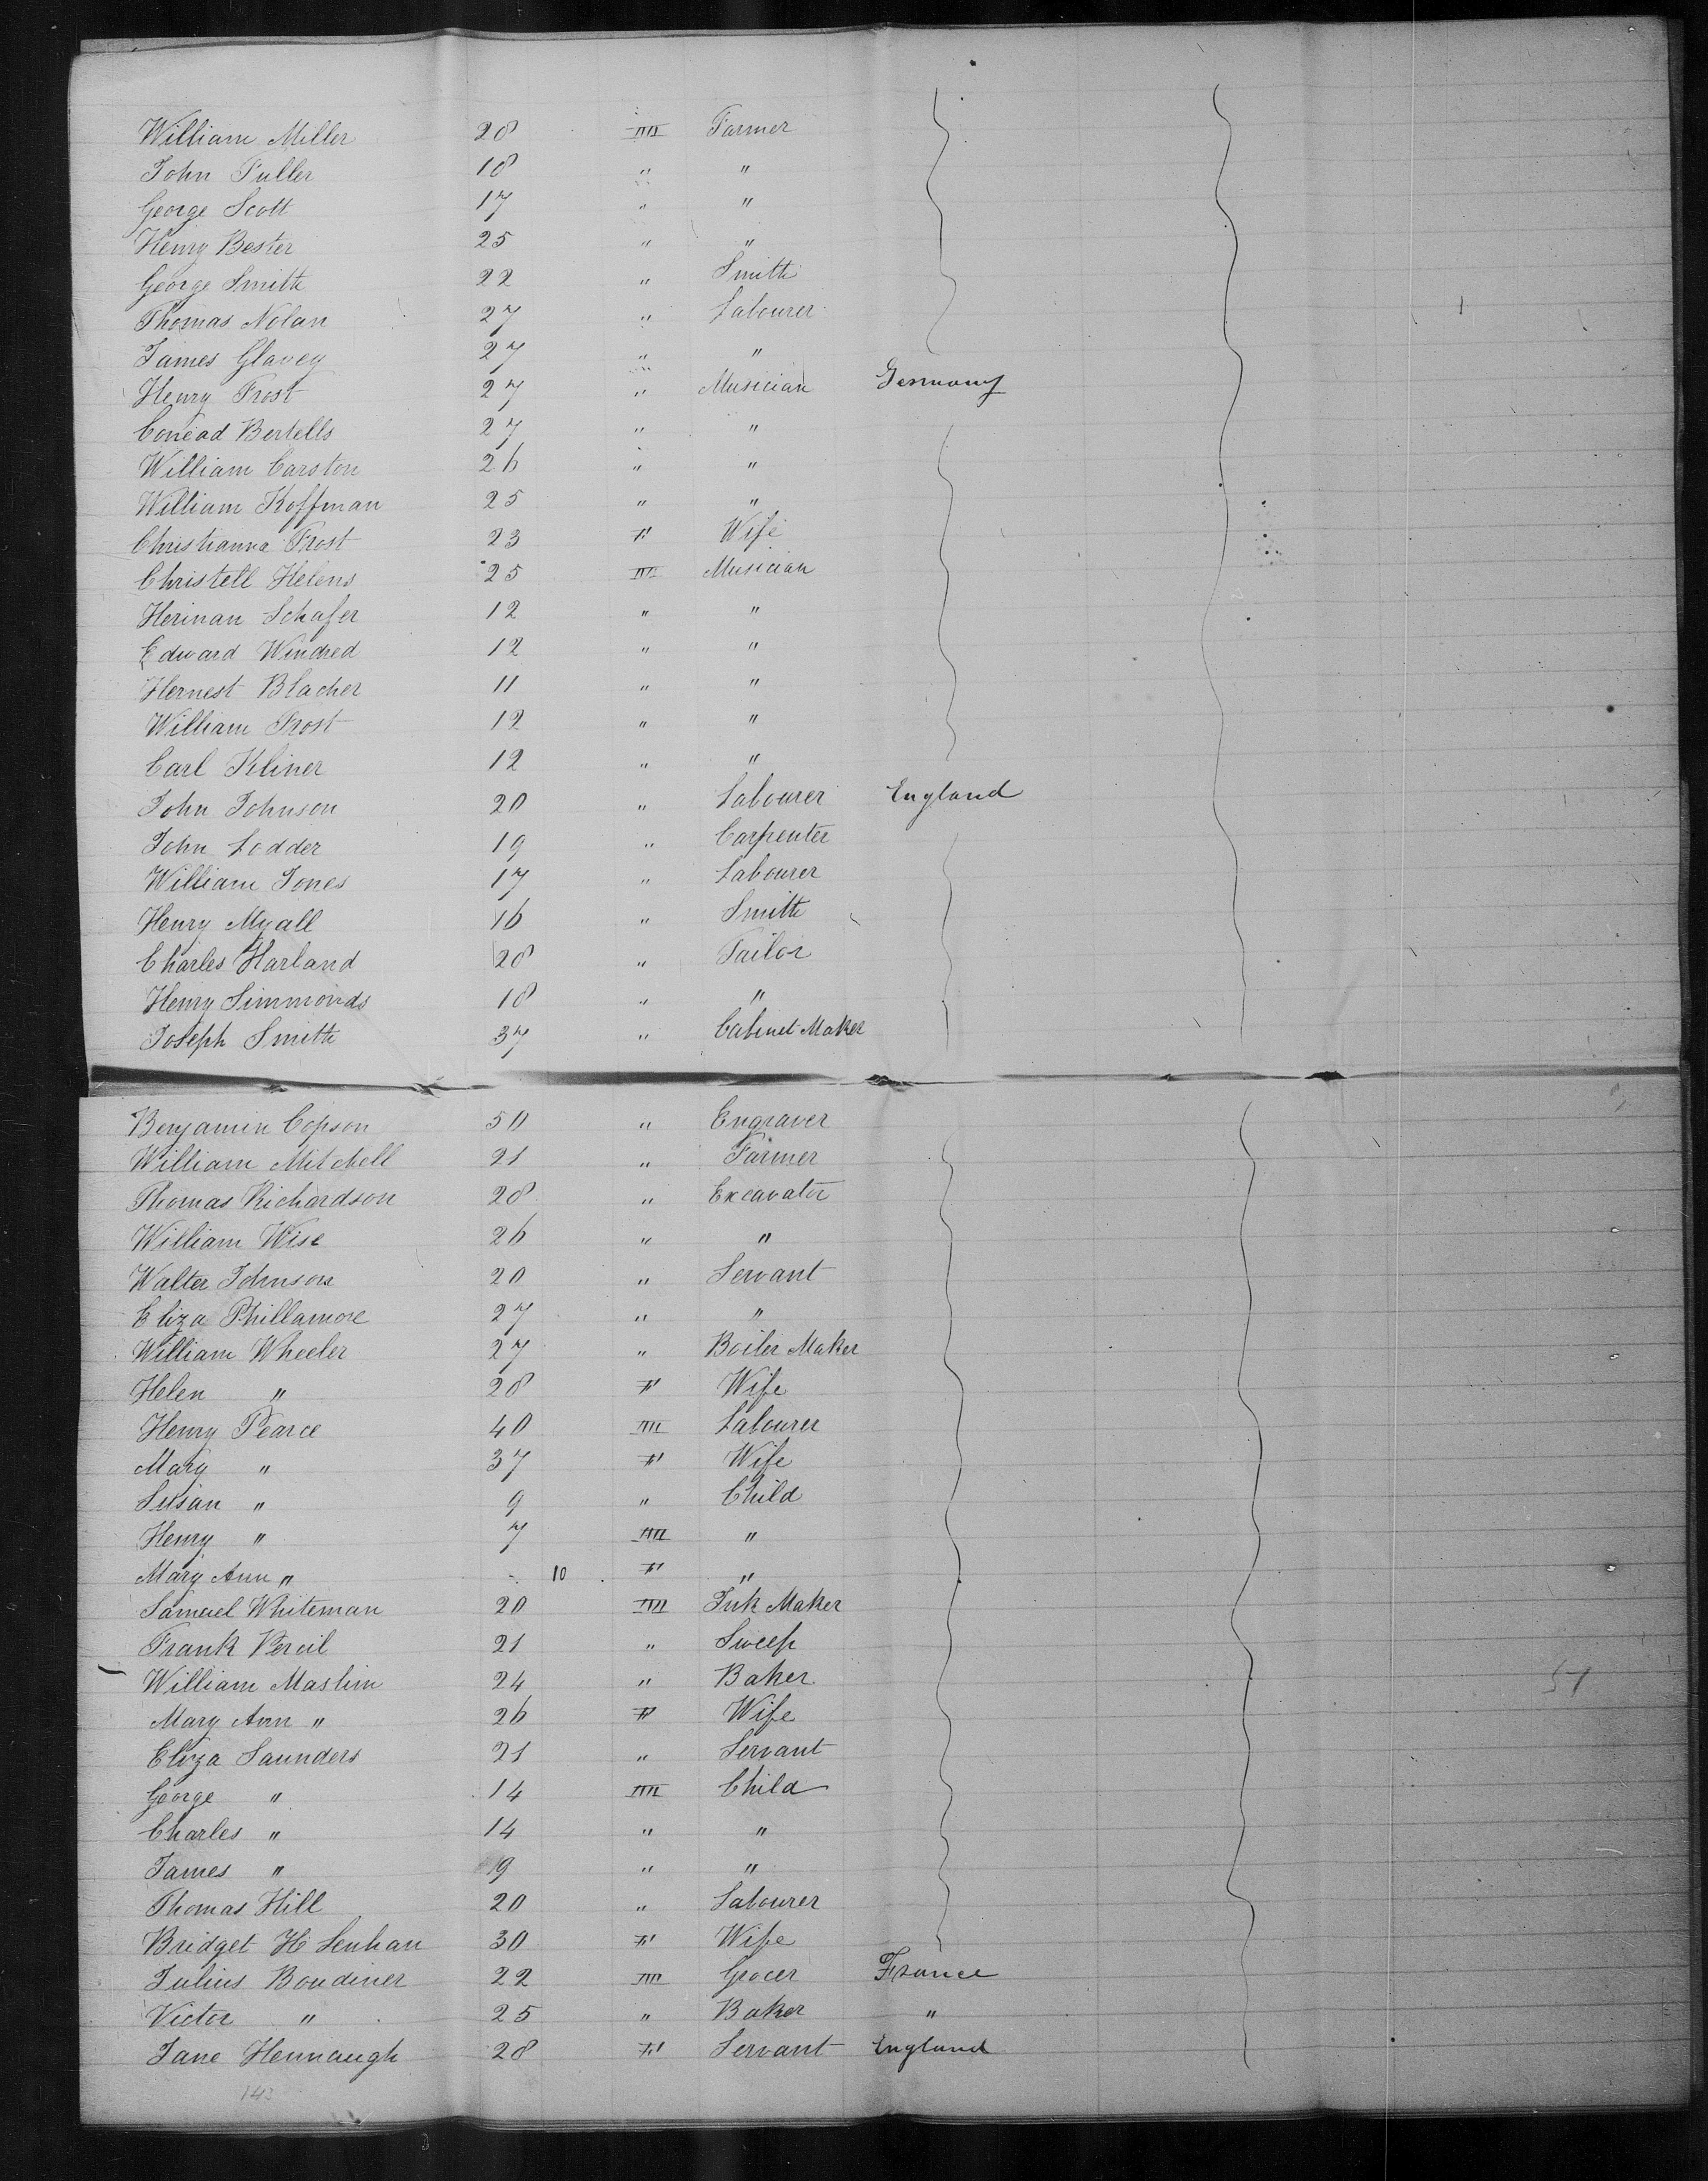 William Miller 28 m Farmer
John Fuller 18 " "
George Scott 17 " "
Henry Bester 25 " "
George Smith 22 " Smith
Thomas Nolan 27 " Labourer
James Glavey 27 " "
Henry Frost 27 " Musician Germany
Conead Bertells 27 " "
William Carston 26 " "
William Koffman 25 " "
Christianna Frost 23 F Wife
Christell Helens 25 m Musician
Herman Schafer 12 " "
Edward Windred 12 " "
Hernest Blacher 11 " "
William Frost 12 " "
Carl Kliner 12 " "
John Johnson 20 " Labourer England
John Lodder 19 " Carpenter
William Jones 17 " Labourer
Henry Myall 16 " Smith
Charles Harland 28 " Tailor
Henry Simmonds 18 " "
Joseph Smith 37 " Cabinet Maker
Benjamin Copson 50 " Engraver
William Mitchell 21 " Farmer
Thomas Richardson 28 " Excavator
William Wise 26 " "
Walter Johnson 20 " Servant
Eliza Phillamore 27 " "
William Wheeler 27 " Boiler Maker
Helen " 28 F Wife
Henry Pearce 40 m Labourer
Mary " 37 F Wife
Susan " 9 " Child
Henry " 7 m "
Mary Ann " - 10 F "
Samuel Whiteman 20 m Ink Maker
Frank Vercil 21 " Sweep
William Maslim 24 " Baker
Mary Ann " 26 F Wife
Eliza Saunders 21 " Servant
George " 14 m Child
Charles " 14 " "
James " 9 " "
Thomas Hill 20 " Labourer
Bridget H Lenhan 30 F Wife
Julius Boudiner 22 m Grocer France
Victor " 25 " Baker "
Jane Hennaugh 28 F Servant England